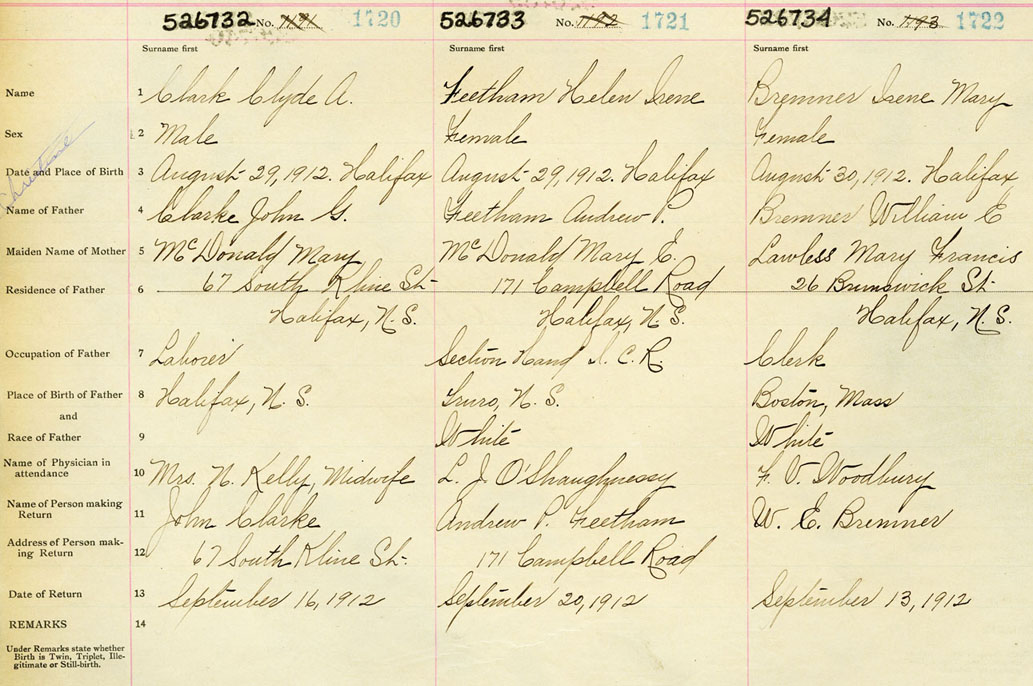 526732 No. 1191 1720 526733 No. 1192 1721 526734 No. 1193 1722
Surname first Surname first Surname first
Name 1 Clark Clyde A. Feetham Helen Irene Bremner Irene Mary
Sex 2 Male Female Female
Christine
Date and Place of Birth 3 August 29, 1912. Halifax August 29, 1912. Halifax August 30, 1912. Halifax
Name of Father 4 Clarke John G. Feetham Andrew P. Bremner William E
Maiden Name of Mother 5 McDonald Mary McDonald Mary E. Lawless Mary Francis
Residence of Father 6 67 South Kline St. 171 Campbell Road 26 Brunswick St.
Halifax, N.S. Halifax, N.S. Halifax, N.S.
Occupation of Father 7 Laborer Section Hand I.C.R. Clerk
Place of Birth of Father 8 Halifax, N.S. Truro, N.S. Boston, Mass
and
Race of Father 9 White White
Name of Physician in
attendance 10 Mrs. N. Kelly, Midwife L. J. O'Shaughnessy F. V. Woodbury
Name of Person making
Return 11 John Clarke Andrew P. Feetham W. E. Bremner
Address of Person mak-
ing Return 12 67 South Kline St. 171 Campbell Road
Date of Return 13 September 16, 1912 September 20, 1912 September 13, 1912
REMARKS 14
Under Remarks state whether
Birth is Twin, Triplet, Ille-
gitimate or Still-birth.